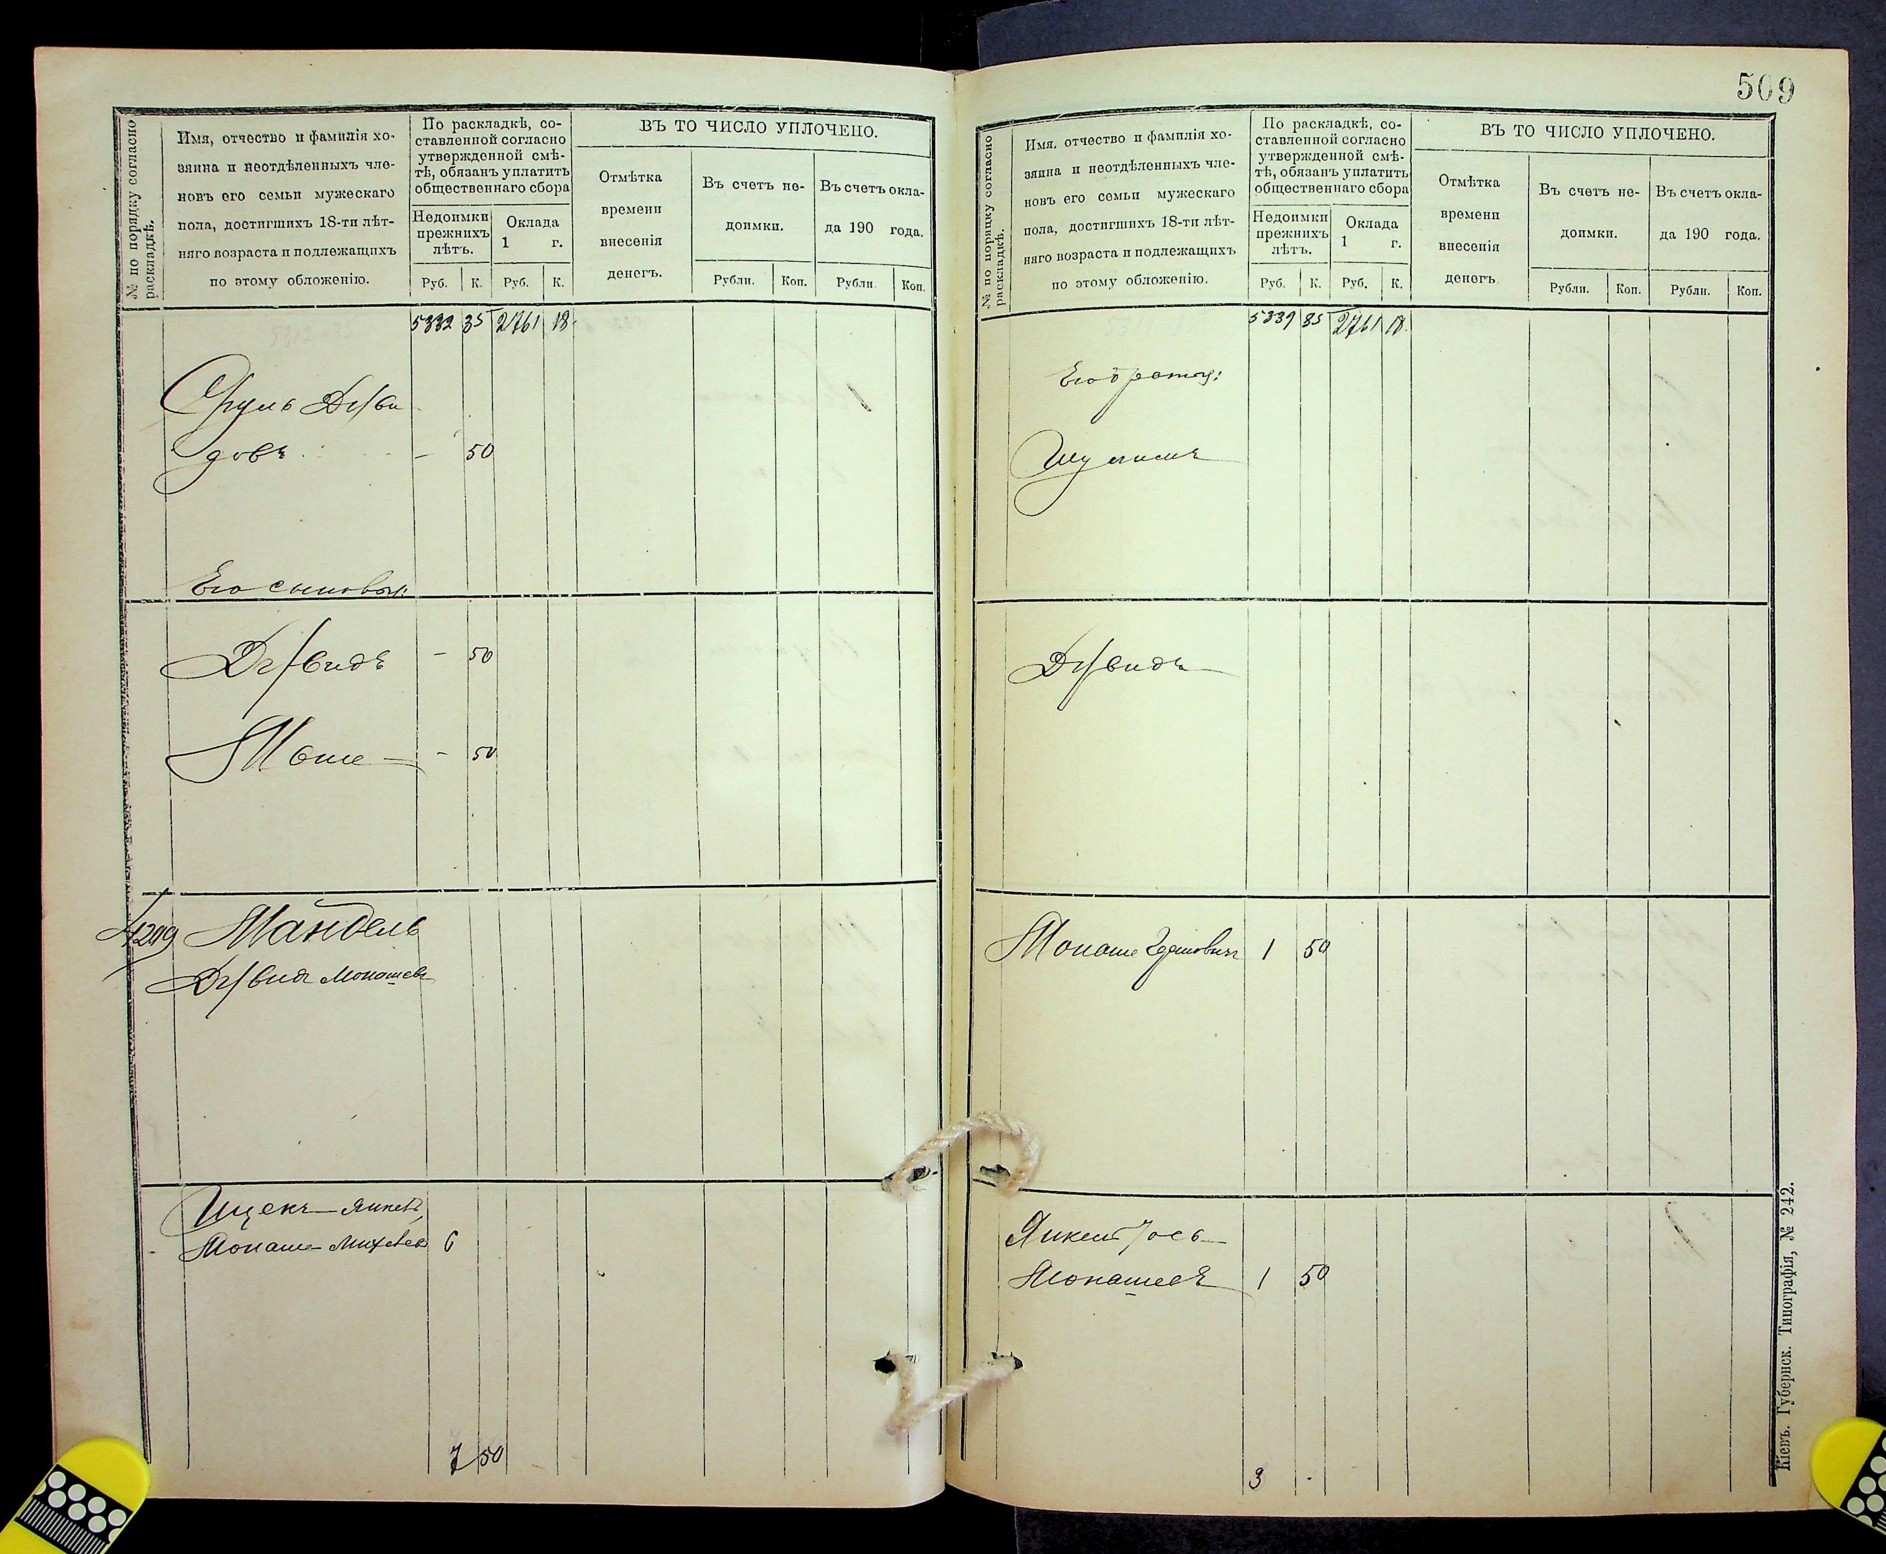 № по порядку согласно
раскладкѣ.
Имя, отчество и фамилія хо-
зяина и неотдѣленныхъ чле-
новъ его семьи мужескаго
пола, достигшихъ 18-ти лѣт-
няго возраста и подлежащихъ
по этому обложенію.
По раскладкѣ, со-
ставленной согласно
утвержденной смѣ-
тѣ, обязанъ уплатить
общественнаго сбора
Недоимки
прежнихъ
лѣтъ.
Оклада
1 г.
Руб. К. Руб. К.
ВЪ ТО ЧИСЛО УПЛОЧЕНО.
Отмѣтка
времени
внесенія
денегъ.
Въ счетъ не-
доимки.
Въ счетъ окла-
да 190 года.
Рубли. Коп. Рубли Коп.
5332 35 2761 18
Сруль Дави
довъ — 50
Его сыновья:
Давидъ — 50
Моше — 50
Мандель
Давид Монашев
Ицекъ Янкель
Монаше 6
7 50
509
№ по порядку согласно
раскладкѣ.
Имя, отчество и фамилія хо-
зяина и неотдѣленныхъ чле-
новъ его семьи мужескаго
пола, достигшихъ 18-ти лѣт-
няго возраста и подлежащихъ
по этому обложенію.
По раскладкѣ, со-
ставленной согласно
утвержденной смѣ-
тѣ, обязанъ уплатить
общественнаго сбора
Недоимки
прежнихъ
лѣтъ.
Оклада
1 г.
Руб. К. Руб. К.
ВЪ ТО ЧИСЛО УПЛОЧЕНО.
Отмѣтка
времени
внесенія
денегъ
Въ счетъ не-
доимки.
Въ счетъ окла-
да 190 года.
Рубли. Коп. Рубли. Коп.
5339 85 2761 18
Его братья:
Шулимъ
Давидъ
Монаше 1 50
Монашевъ 1 50
3
Кіевъ. Губернск. Типографія, № 242.